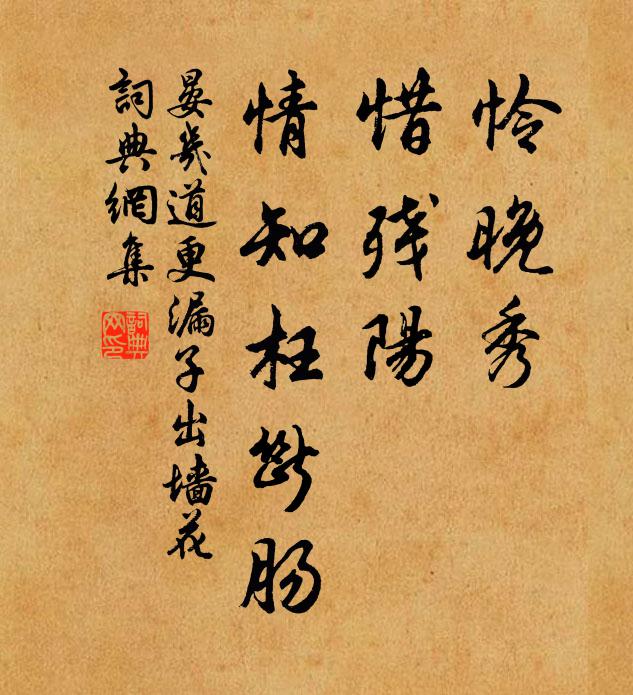 怜晚秀
惜残陽
情知枉断肠
晏幾道更漏子出墻花
詞典網集
詞典网印